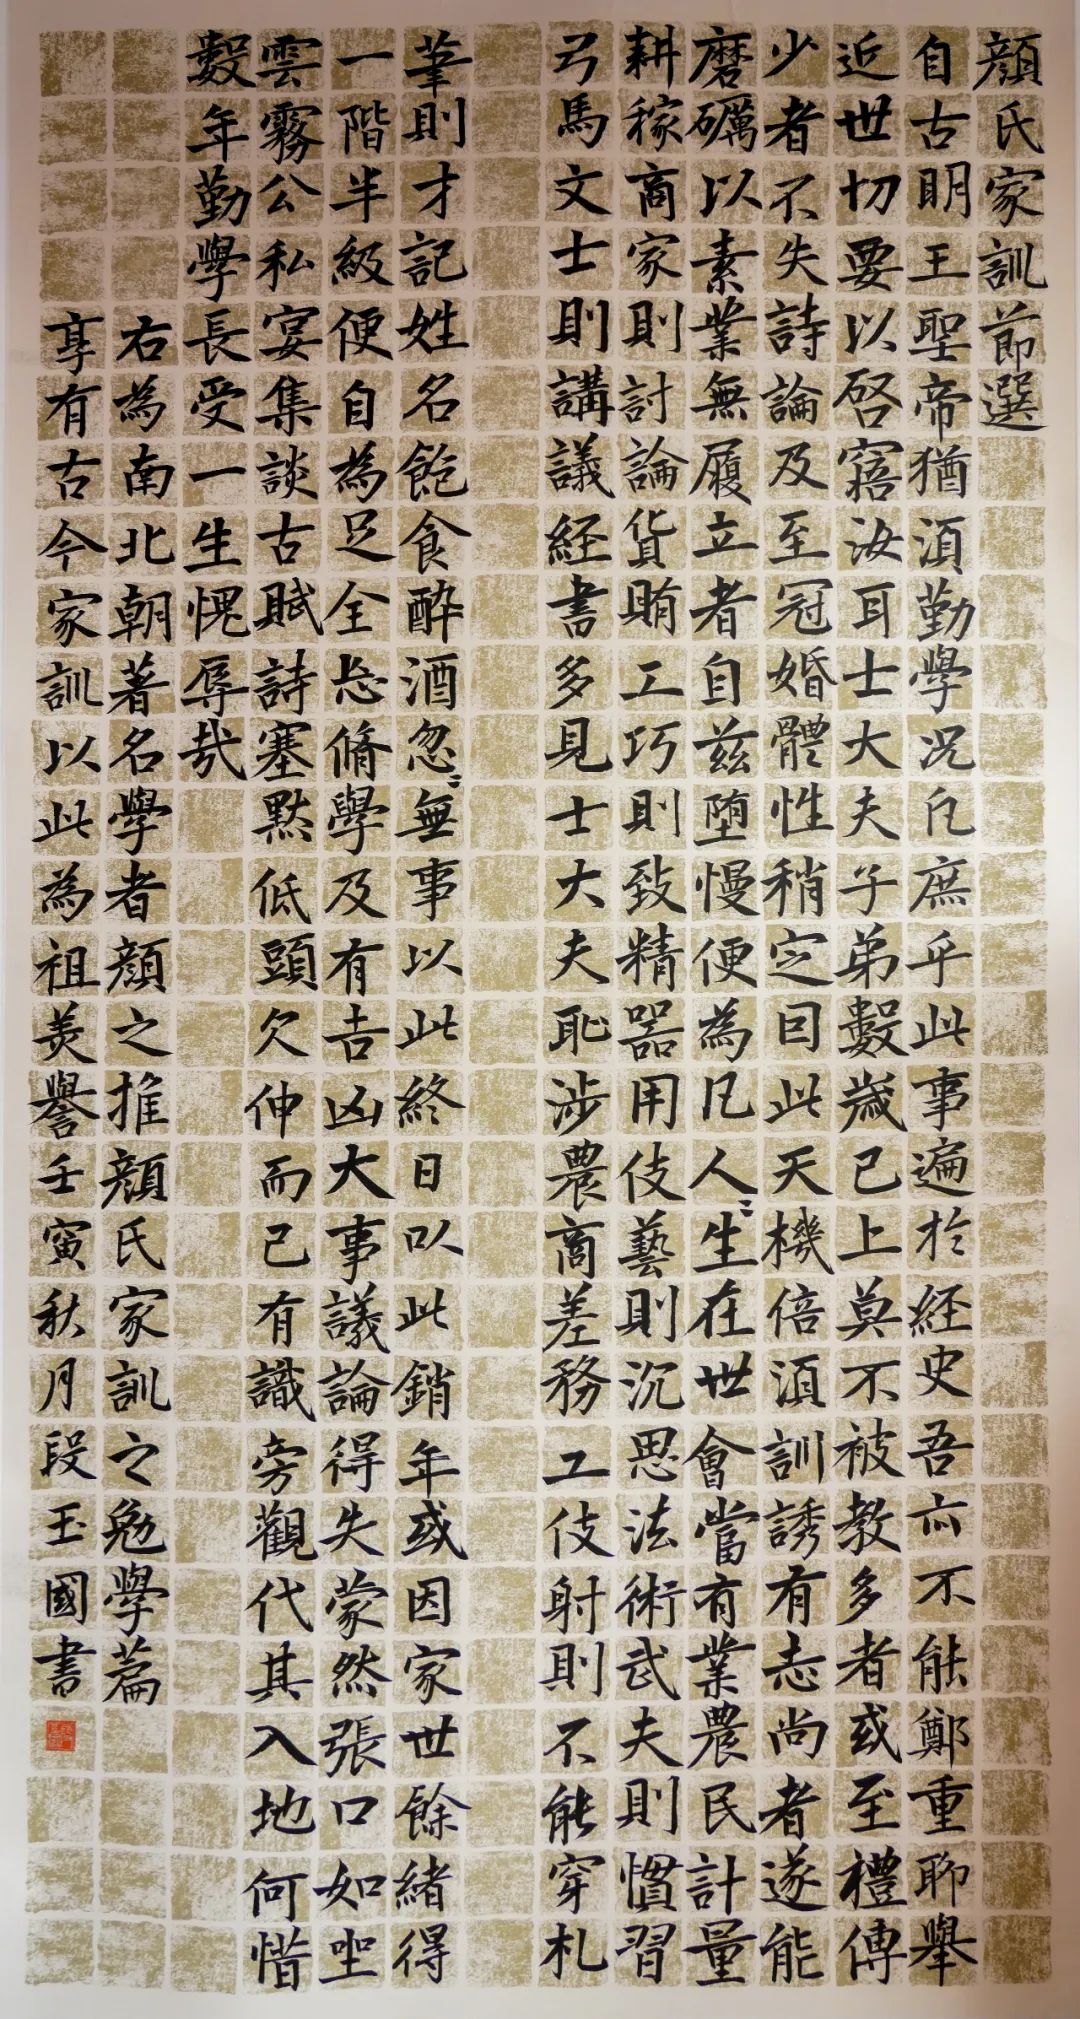 顏氏家訓節選
自古明王聖帝猶湏勤學況凡庶乎此事遍於經史吾亦不能鄭重聊舉
近世切要以啓寤汝耳士大夫子弟數歲已上莫不被教多者或至禮傳
少者不失詩論及至冠婚體性稍定因此天機倍湏訓誘有志尚者遂能
磨礪以素業無履立者自兹墮慢便為凡人〻生在世會當有業農民計量
耕稼商家則討論貨賄工巧則致精器用伎藝則沉思法術武夫則慣習
弓馬文士則講議經書多見士大夫恥涉農商差務工伎射則不能穿札
筆則才記姓名飽食醉酒忽〻無事以此終日以此銷年或因家世餘緒得
一階半級便自為足全忘脩學及有吉凶大事議論得失蒙然張口如坐
雲霧公私宴集談古賦詩塞默低頭欠伸而已有識旁觀代其入地何惜
數年勤學長受一生愧辱哉
右為南北朝著名學者顏之推顏氏家訓之勉學篇
享有古今家訓以此為祖美譽壬寅秋月段玉國書